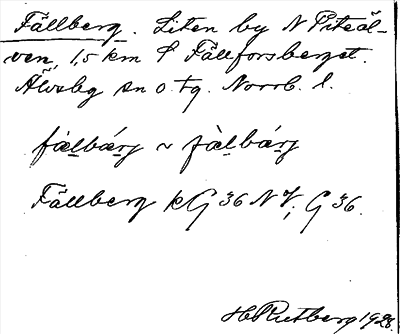 Fällberg. Liten by N Piteäl-
ven, 1,5 km Fällforsberget.
Älvsby sn o. tg. Norrb. l.
fàlbárj ~ fàlbárj
Fällberg kG 36 NV; G 36.
H Rutberg 1928.